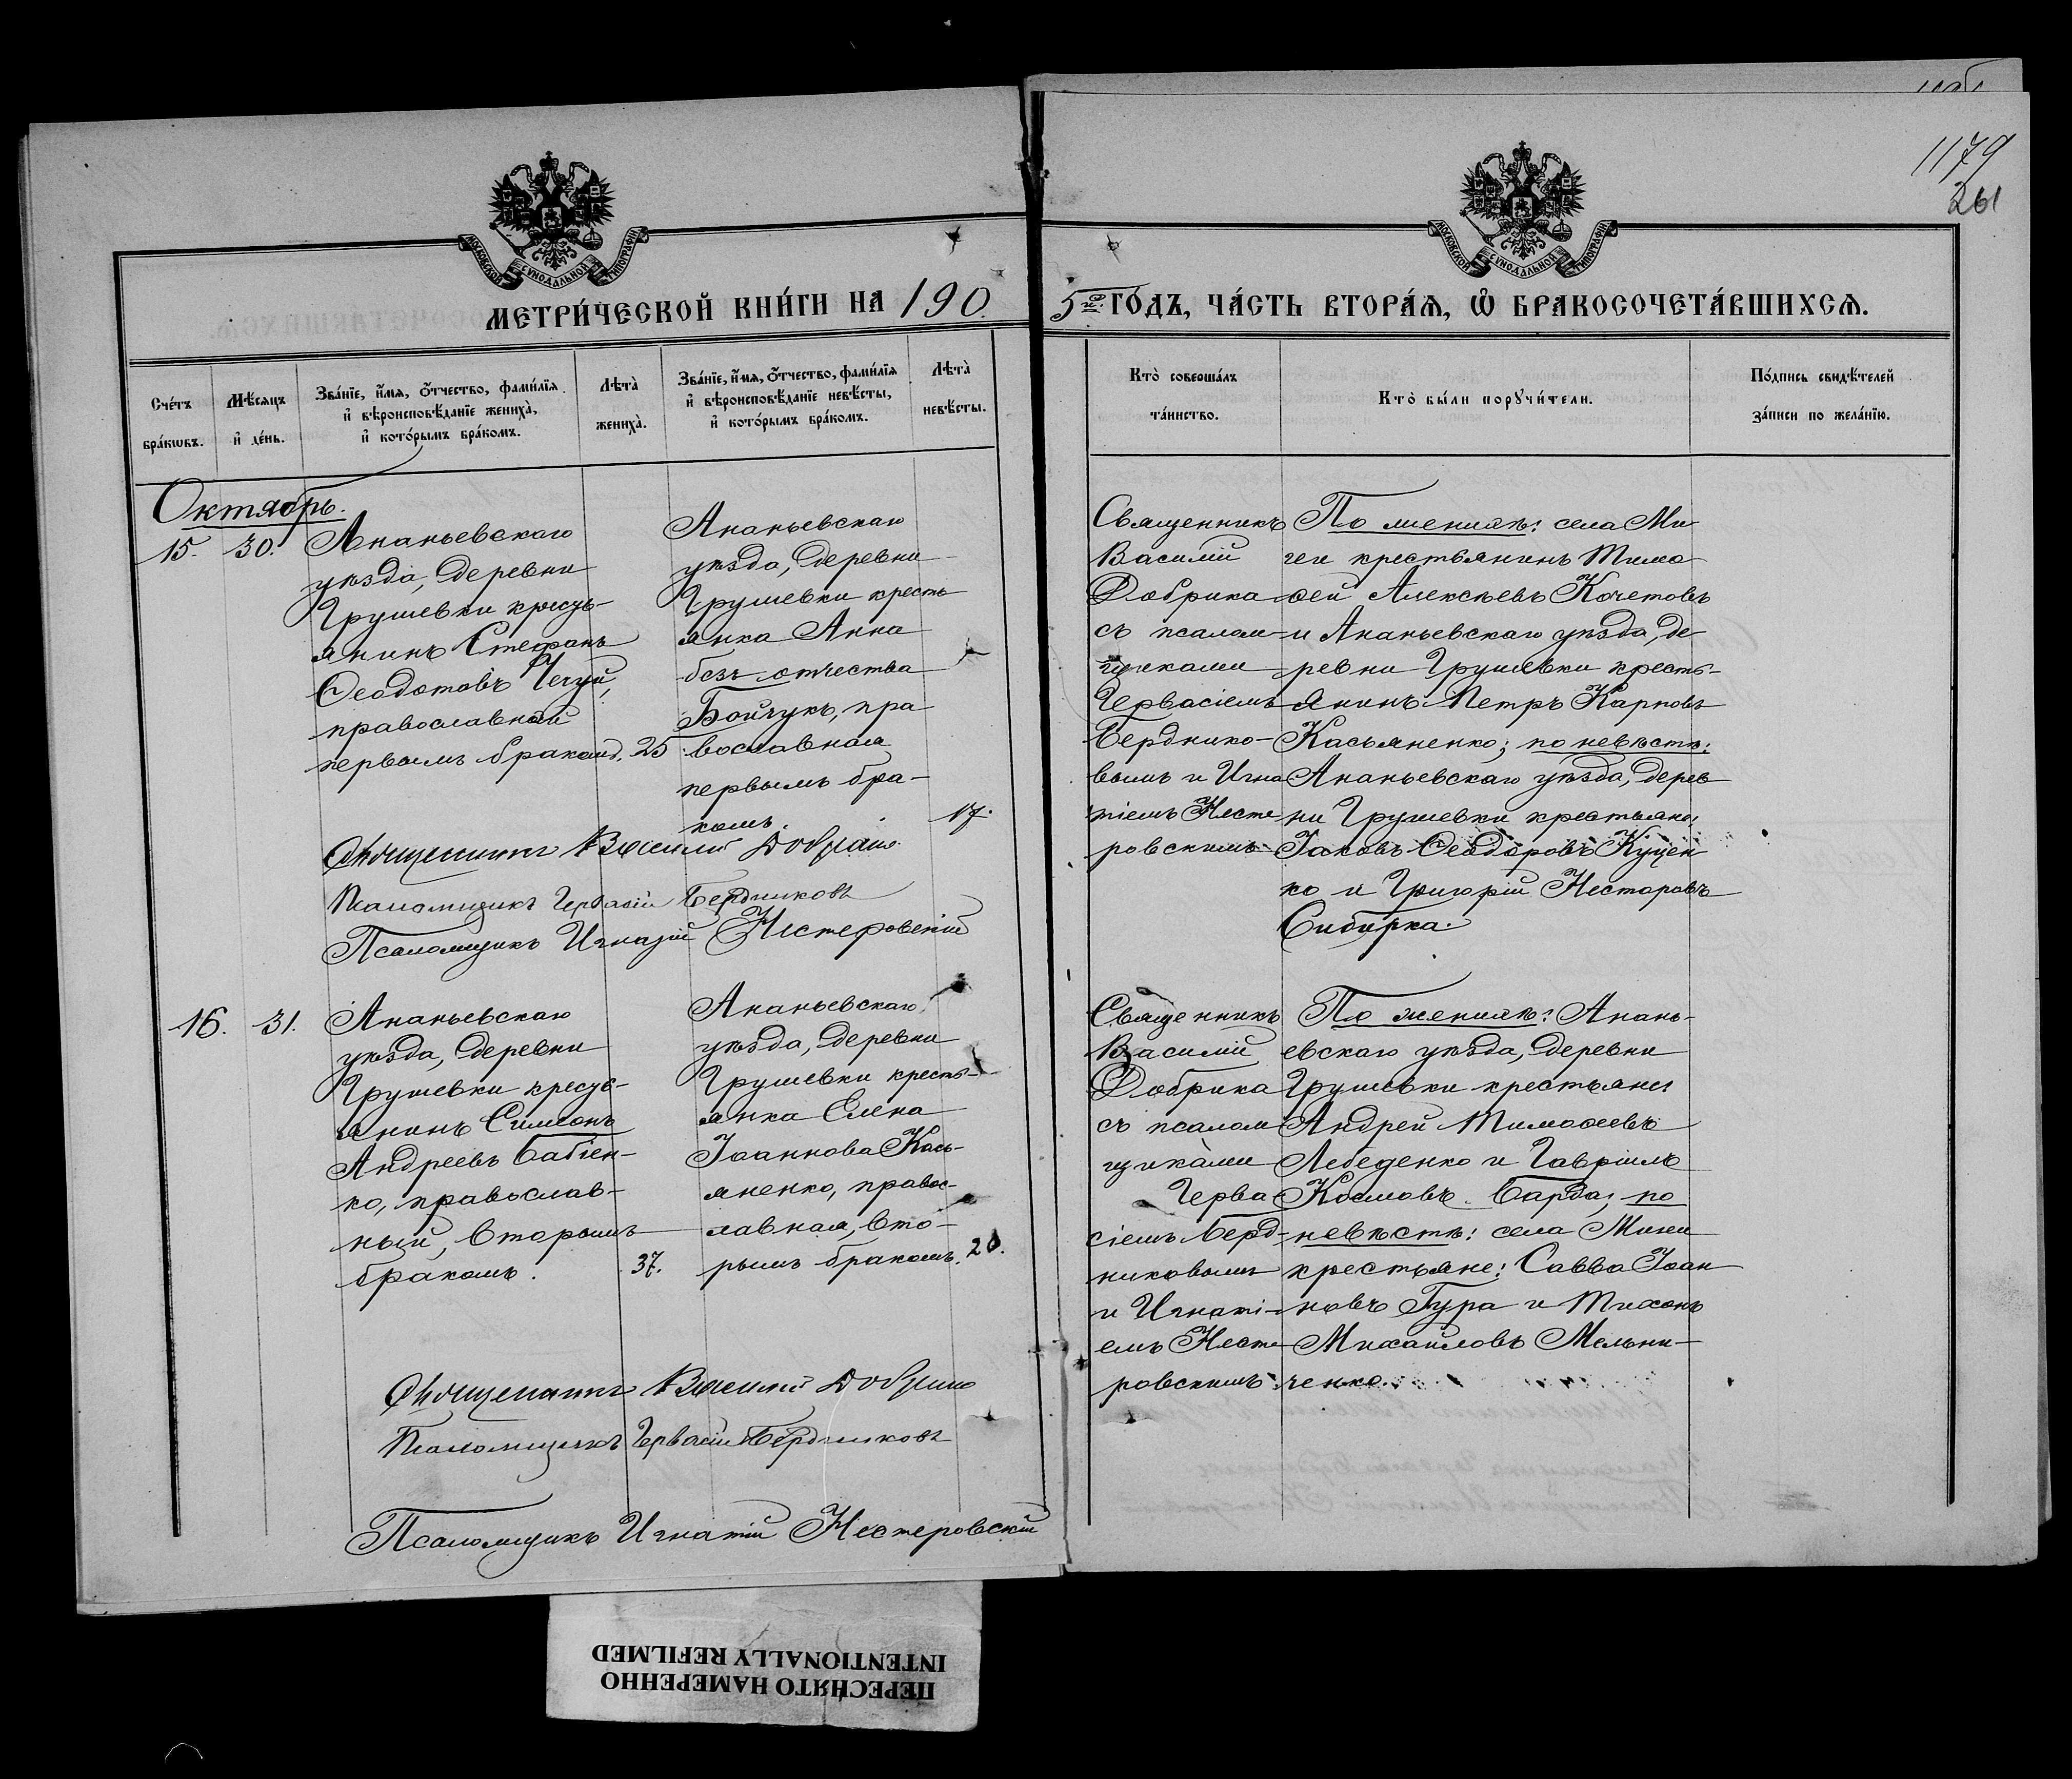 1179
261
МОСКОВСКОЙ СУНОДАЛЬНОЙ ТИПОГРАФІИ
МОСКОВСКОЙ СУНОДАЛЬНОЙ ТИПОГРАФІИ
МЕТРИ́ЧЕСКОЙ КНИ́ГИ НА 190
5го ГОДЪ, ЧА́СТЬ ВТОРА́Я, Ѡ БРАКОСОЧЕТА́ВШИХСЯ.
Сче́тъ бра́кѡвъ.
Мѣ́сяцъ и де́нь.
Зва́нїе, и́мя, о́тчество, фами́лїя
и вѣроисповѣ́данїе жениха̀,
и кото́рымъ бра́комъ.
Лѣта̀ жениха̀.
Зва́нїе, и́мя, о́тчество, фами́лїя
и вѣроисповѣ́данїе невѣ́сты,
и кото́рымъ бра́комъ.
Лѣта̀ невѣ́сты.
Кто̀ соверша́лъ
та́инство.
Кто̀ бы́ли поручи́тели.
По́дпись свидѣ́телей
за́писи по жела́нїю.
Октябрь.
15. 30.
Ананьевскаго
уѣзда, деревни
Грушевки кресть-
янинъ Стефанъ
Ѳеодотовъ Чегуй,
православный
первымъ бракомъ. 25
Ананьевскаго
уѣзда, деревни
Грушевки кресть
янка Анна
безъ отчества
Бойчукъ, пра
вославная
первымъ бра-
комъ. 17.
Священникъ
Василій
Добрика
съ псалом-
щиками
Гервасіемъ
Бердніко-
вымъ и Игна
тіемъ Несте
ровскимъ
По женихѣ: села Ми
геи крестьянинъ Тимо
ѳей Алексѣевъ Кочетовъ
и Ананьевскаго уѣзда, де
ревни Грушевки кресть-
янинъ Петръ Карповъ
Касьяненко; по невѣстѣ:
Ананьевскаго уѣзда, дерев
ни Грушевки крестьяне:
Іаковъ Ѳеодоровъ Куцен
ко и Григорій Несторовъ
Сибирка.
Священникъ Василій Добрика
Псаломщикъ Гервасій Бердниковъ
Псаломщикъ Игнатій Нестеровскій
16. 31.
Ананьевскаго
уѣзда, деревни
Грушевки кресть-
янинъ Симеонъ
Андреевъ Бабіен-
ко, православ-
ный, вторымъ
бракомъ. 37.
Ананьевскаго
уѣзда, деревни
Грушевки кресть-
янка Елена
Іоаннова Кась-
яненко, правос-
лавная, вто-
рымъ бракомъ.
Священникъ
Василій
Добрика
съ псалом
щиками
Герва-
сіемъ Берд-
никовымъ
и Игнаті-
емъ Несте
ровскимъ
По женихѣ: Анань-
евскаго уѣзда, деревни
Грушевки крестьяне
Андрей Тимоѳеевъ
Лебеденко и Гавріилъ
Космовъ Барда; по
невѣстѣ: села Мигеи
крестьяне: Савва Іоан
новъ Гура и Тихонъ
Михаиловъ Мельни-
ченко.
Священникъ Василій Добрика
Псаломщикъ Гервасій Бердниковъ
Псаломщикъ Игнатій Нестеровскій
ПЕРЕСНЯТО НАМЕРЕННО
INTENTIONALLY REFILMED